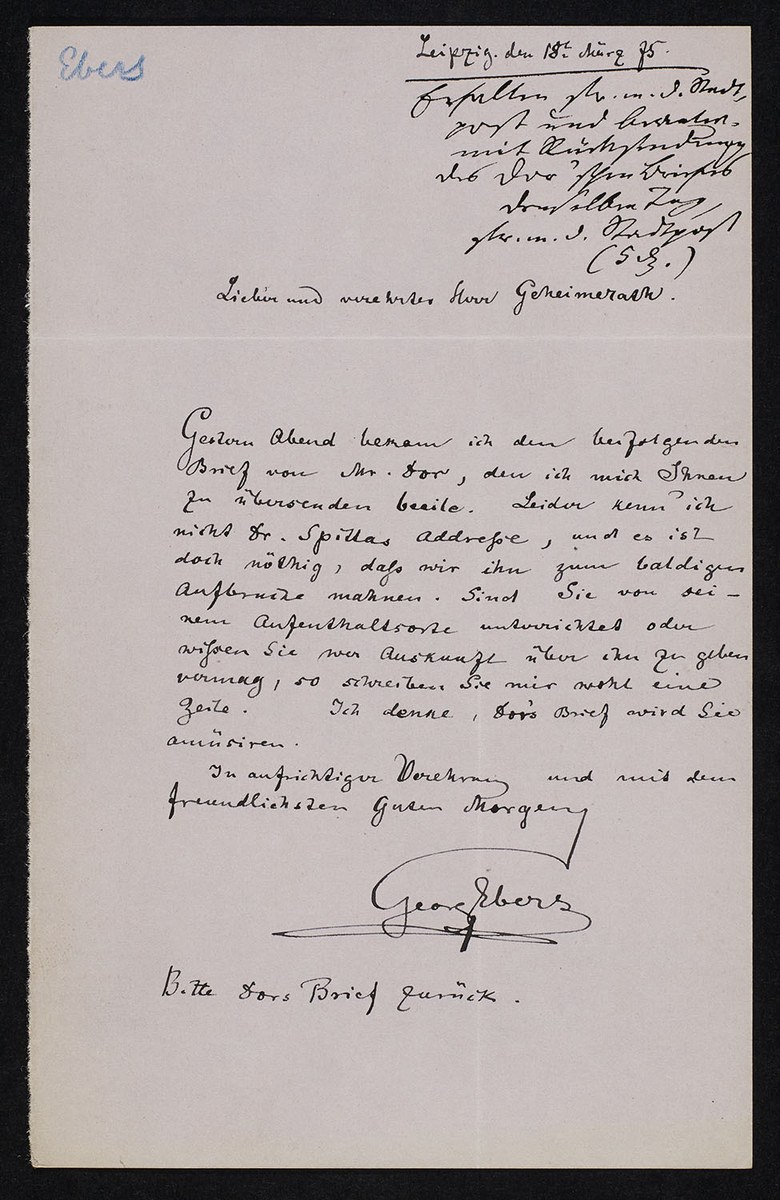 Ebers
Leipzig. den 18t. März 75.
Erhalten pr. m. d. Stadt-
post und beantw.
mit Rücksendung
des Dor'schen Briefes
denselben Tag
pr. m. d. Stadtpost
Lieber und verehrter Herr Geheimerath.
Gestern Abend bekam ich den beifolgenden
Brief von Mr. Dor, den ich mich Ihnen
zu übersenden beeile. Leider kenn' ich
nicht Dr. Spittas Addreſse, und es ist
doch nöthig, daſs wir ihn zum baldigen
Aufbruche mahnen. Sind Sie von sei-
nem Aufenthaltsorte unterrichtet oder
wiſsen Sie wer Auskunft über ihn zu geben
vermag, so schreiben Sie mir wohl eine
Zeile. Ich denke, Dor's Brief wird Sie
amüsiren.
In aufrichtiger Verehrung und mit dem
freundlichsten Guten Morgen
Georg Ebers
Bitte Dors Brief zurück.